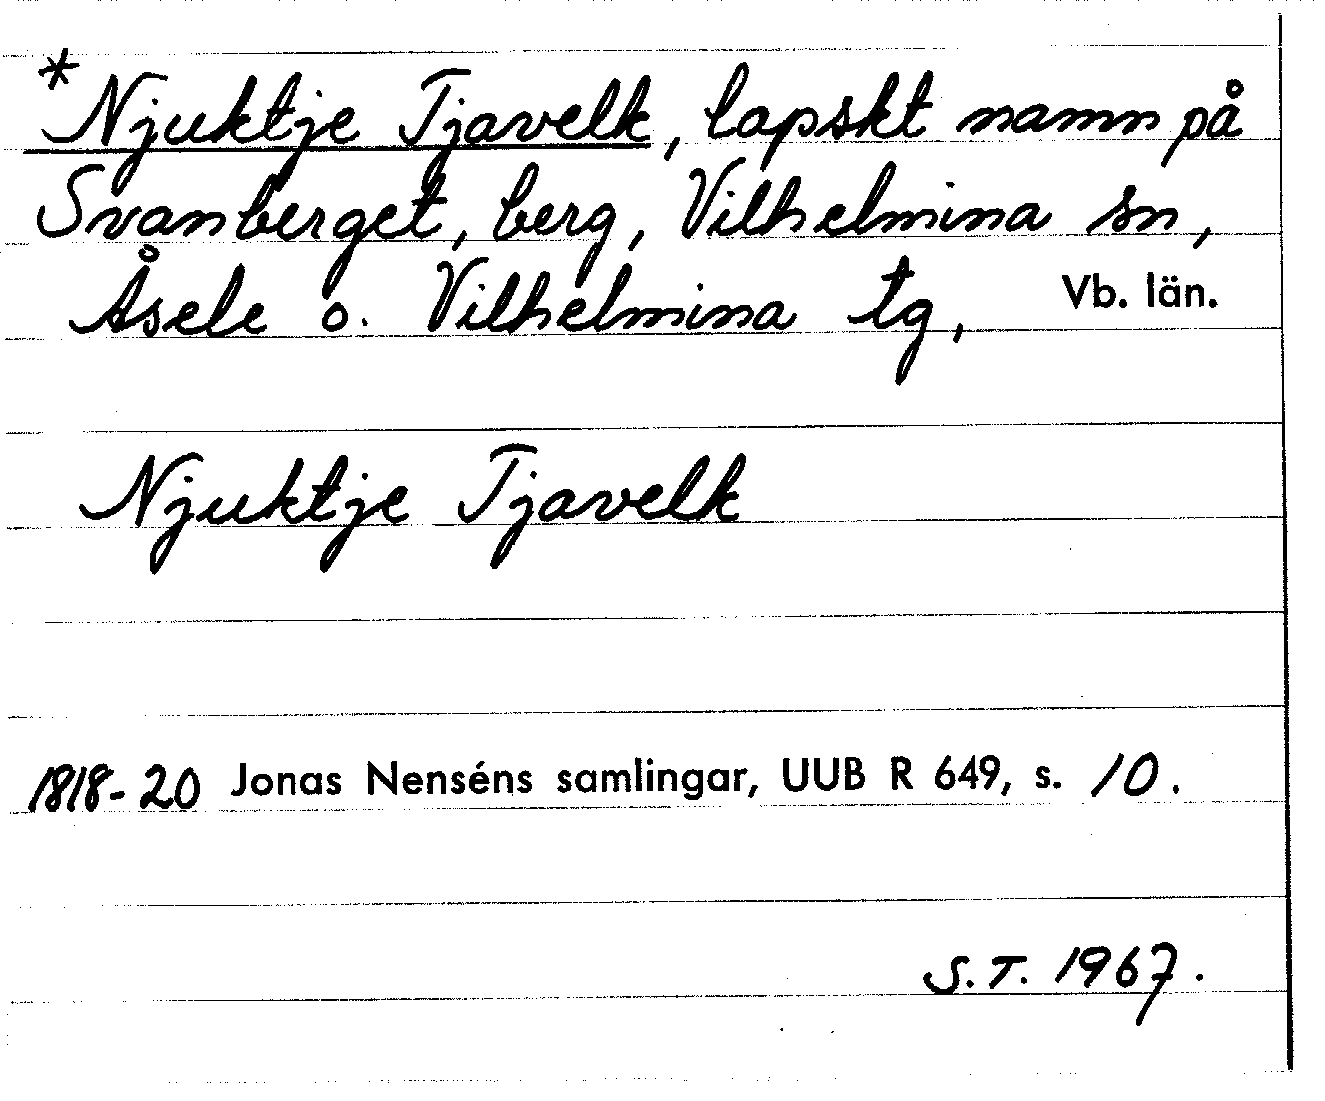 *Njuktje Tjavelk, lapskt namn på
Svanberget, berg, Vilhelmina sn,
Åsele o. Vilhelmina tg, Vb. län.
Njuktje Tjavelk
1818-20 Jonas Nenséns samlingar, UUB R 649, s. 10.
S.T. 1967.